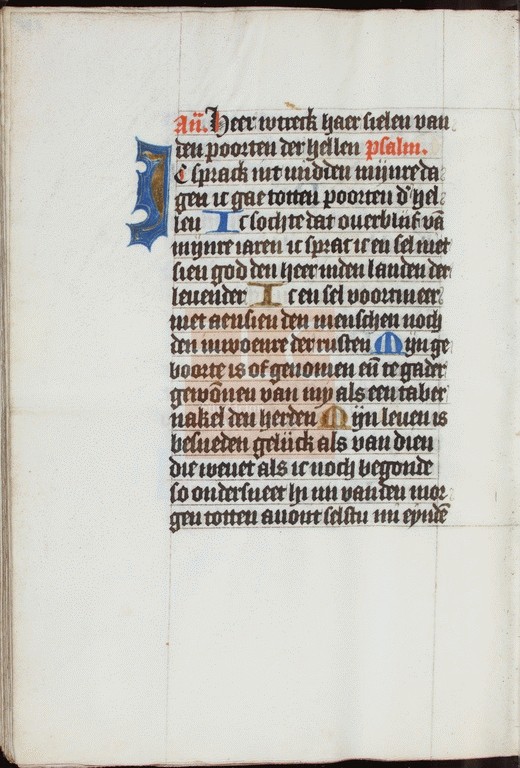 Añ. Heer wtreck haer sielen van
den poorten der hellen Psalm.
IC sprack int midden mijnre da
gen ic gae totten poorten d' hel
len Ic sochte dat ouerblijf vā
mijnre iaren ic sprac ic en sel niet
sien god den heer inden landen der
leuender Ic en sel voormeer
niet aensien den menschen noch
den inwoenre der rusten Mijn ge
boorte is of genomen eñ te gader
gewōnen van my als een taber
nakel den herden Mijn leuen is
besneden gelijck als van dien
die weuet als ic noch begonde
so ondersneet hi mi van den mor
gen totten auont selstu mi eyndē